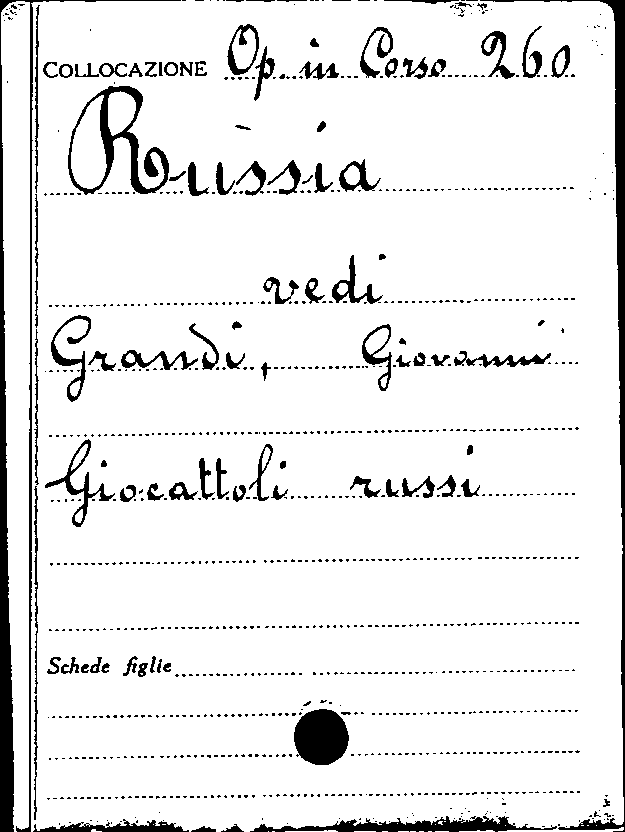 COLLOCAZIONE Op. in Corso 260
Russia
vedi
Grandi, Giovanni
Giocattoli russi
Schede figlie